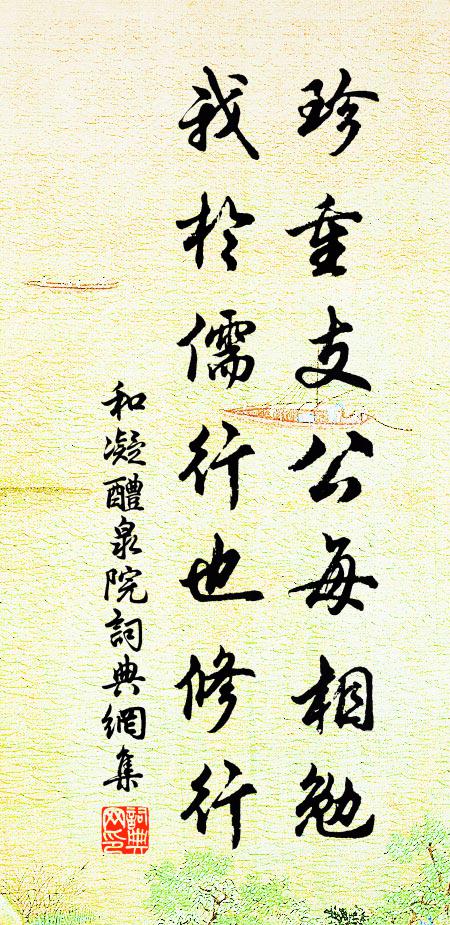 珍重支公每相勉
我於儒行也修行
和凝醴泉院詞典網集
詞典网印